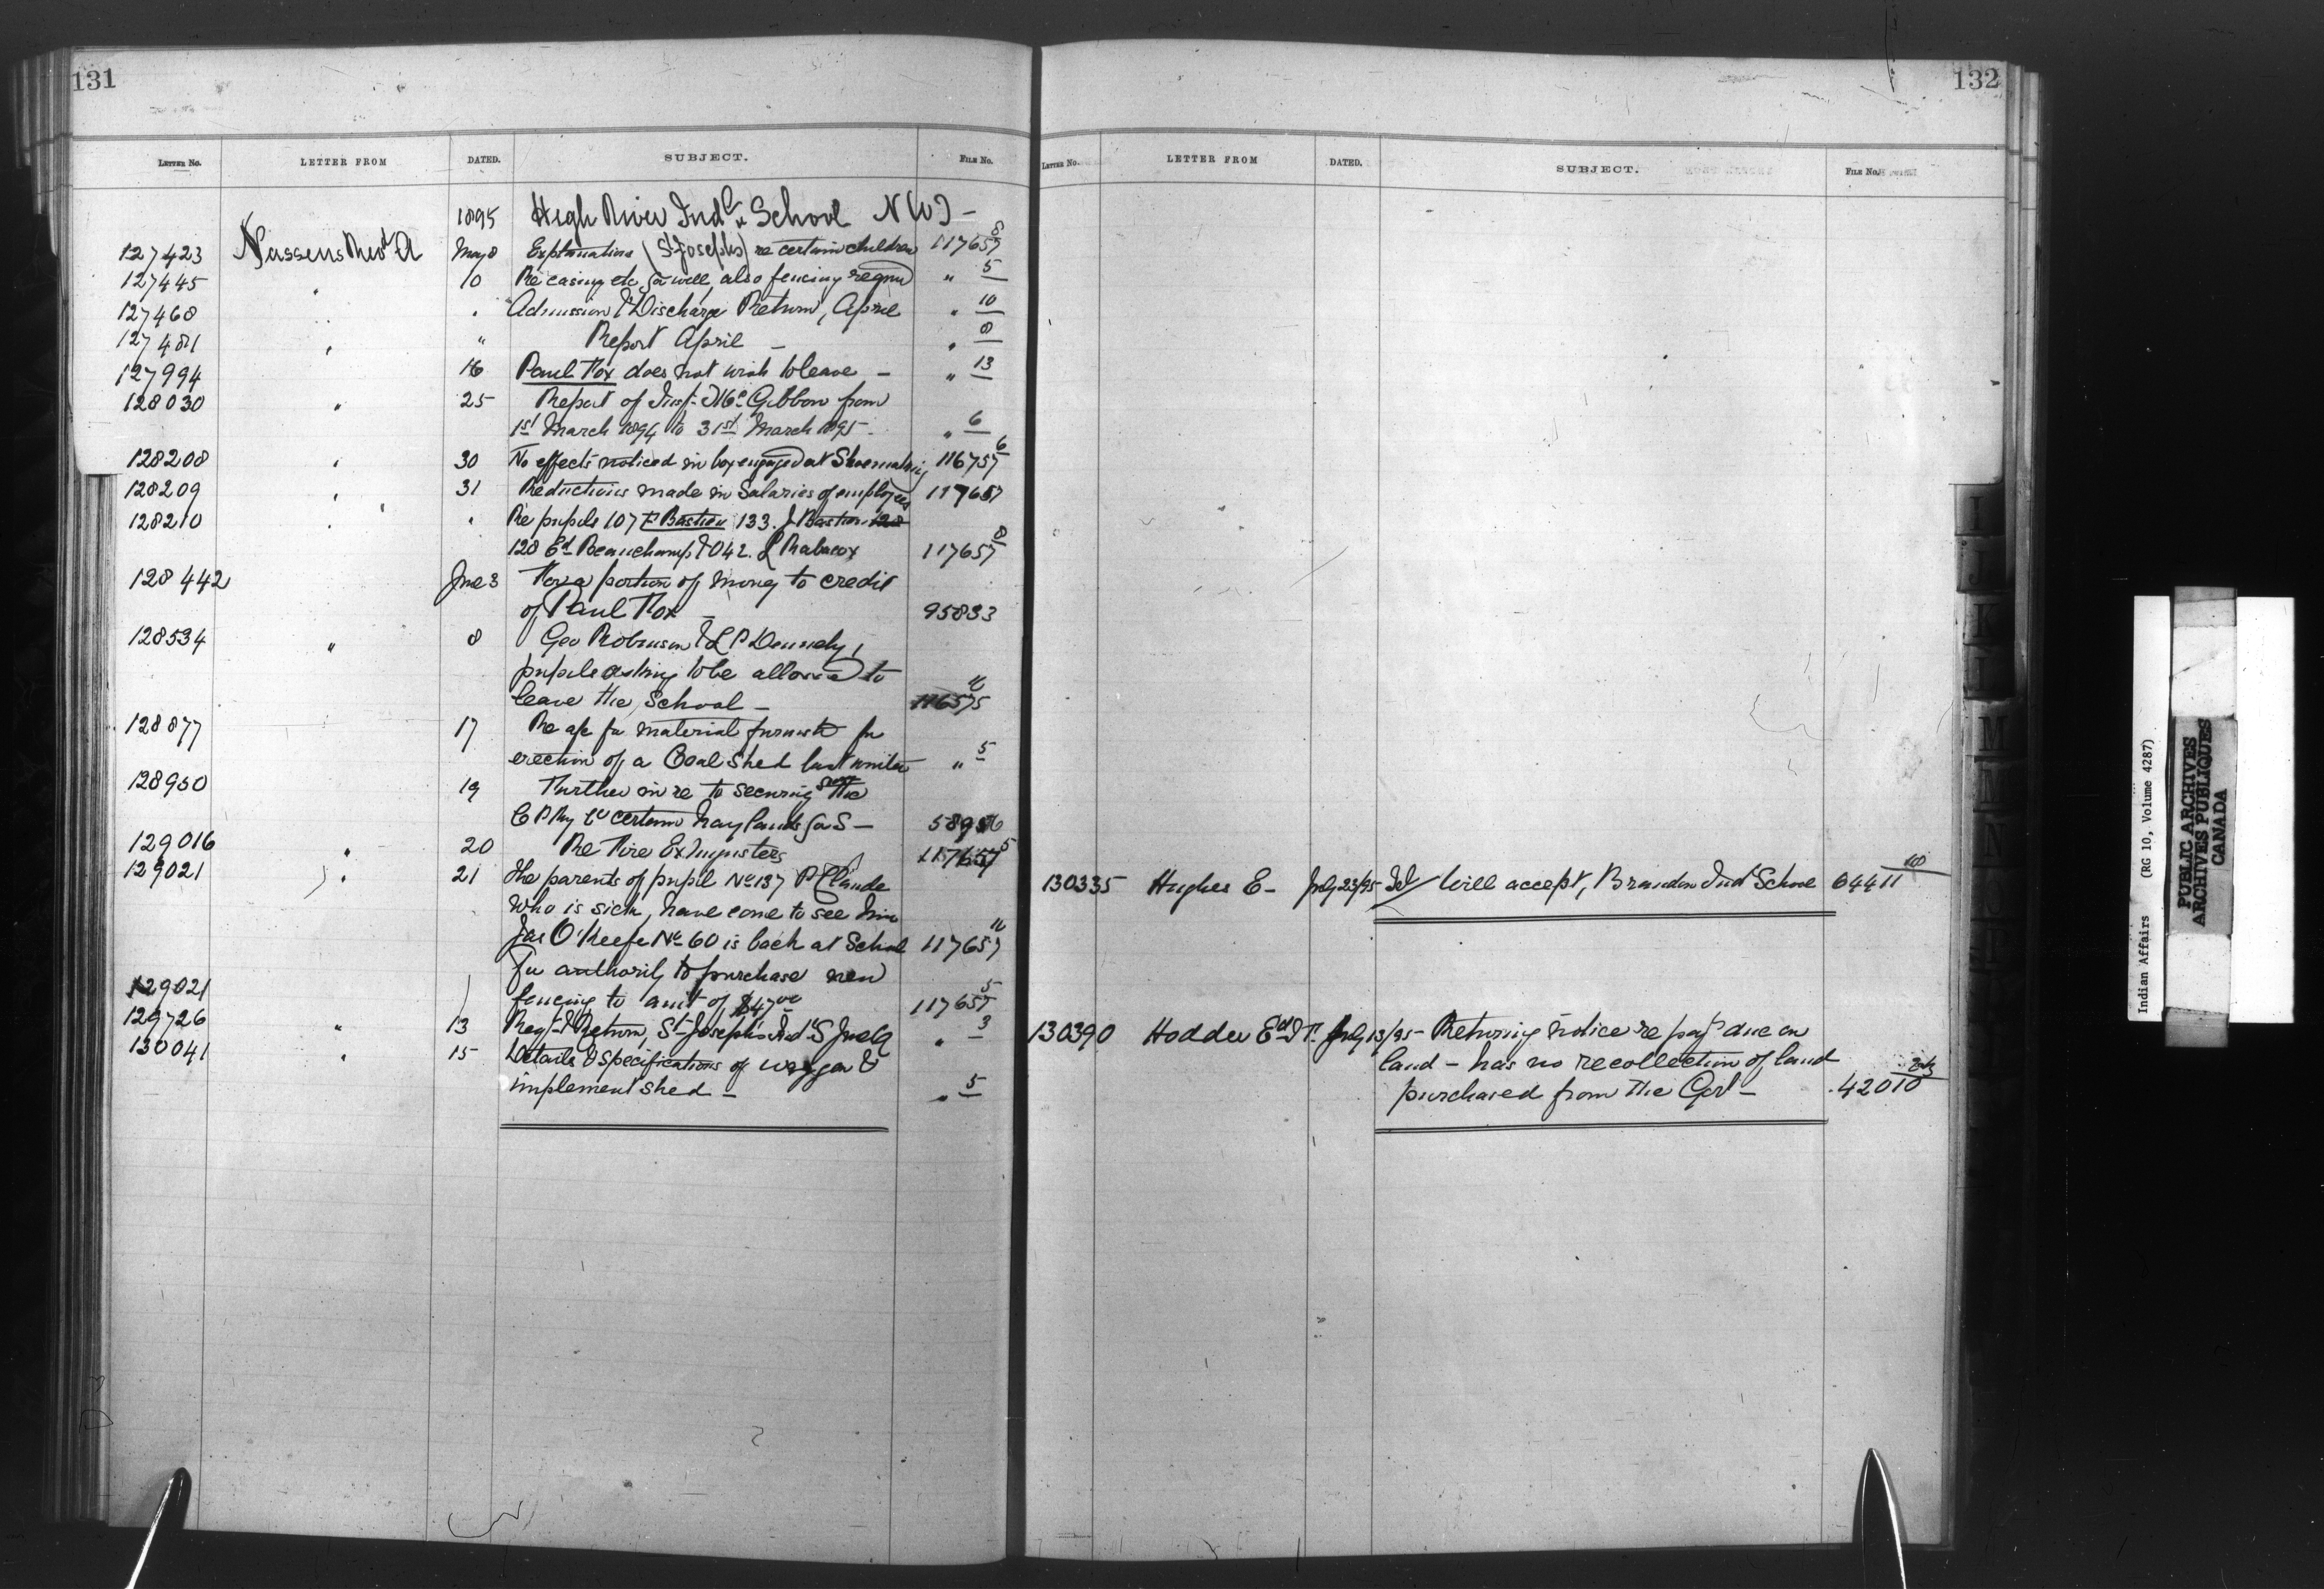 131
LETTER NO. LETTER FROM DATED. SUBJECT. FILE No.
1895 High River Indl School N W T -
127423 Nassens Revd A May 8 Explanations (St Josephs) re certain children 117657 8
127445 " 10 Re casing etc for well, also fencing reqrd " 5
127468 " " Admission & Discharge Return, April " 10
127481 " " Report April - " 8
127994 16 Paul Fox does not wish to leave - " 13
128030 " 25 Report of Insp. McGibbon from
1st March 1894 to 31st March 1895 - " 6
128208 " 30 No effects noticed in boy engaged at Shoemaking 116757 6
128209 " 31 Reductions made in Salaries of employees 117657
128210 " " Re pupils 107 P Bastien 133. J Bastien 128
128 Ed Beauchamp & 042. L 117657 8
128442 Jne 3 For a portion of money to credit
of Paul Fox - 95833
128534 " 8 Geo Robinson & L P Dennehy,
pupils asking to be allowed to
leave the School - 116575
128877 17 Re a/c for material furnish for
erection of a Coal Shed last winter " 5
128950 19 Further in re to securing from the
C P Ry Co certain hay lands for S - 58956
129016 " 20 Re Fire Extinguisters 117657 5
129021 ) " 21 The parents of pupil No 137 P Claude
who is sick, have come to see him
Jas O'Keefe No 60 is back at School 117657
129021 ) For authority to purchase new
fencing to amt of $47.00 117657 5
129726 " 13 Regr & Return, St Joseph's Ind S Jne Q " 3
130041 " 15 Details & specifications of waggon &
implement shed - " 5
132
LETTER No. LETTER FROM DATED. SUBJECT. FILE No.
130335 Hughes E - July 23/95 Tel/ Will accept, Brandon Ind School 64411
130390 Hodder Ed T. July 13/95 - Returning notice re payt due on
land - has no recollection of land
purchased from the Govt - 42010
I
J
K
L
M
M
N
Indian Affairs (RG 10, Volume 4287)
PUBLIC ARCHIVES
ARCHIVES PUBLIQUES
CANADA